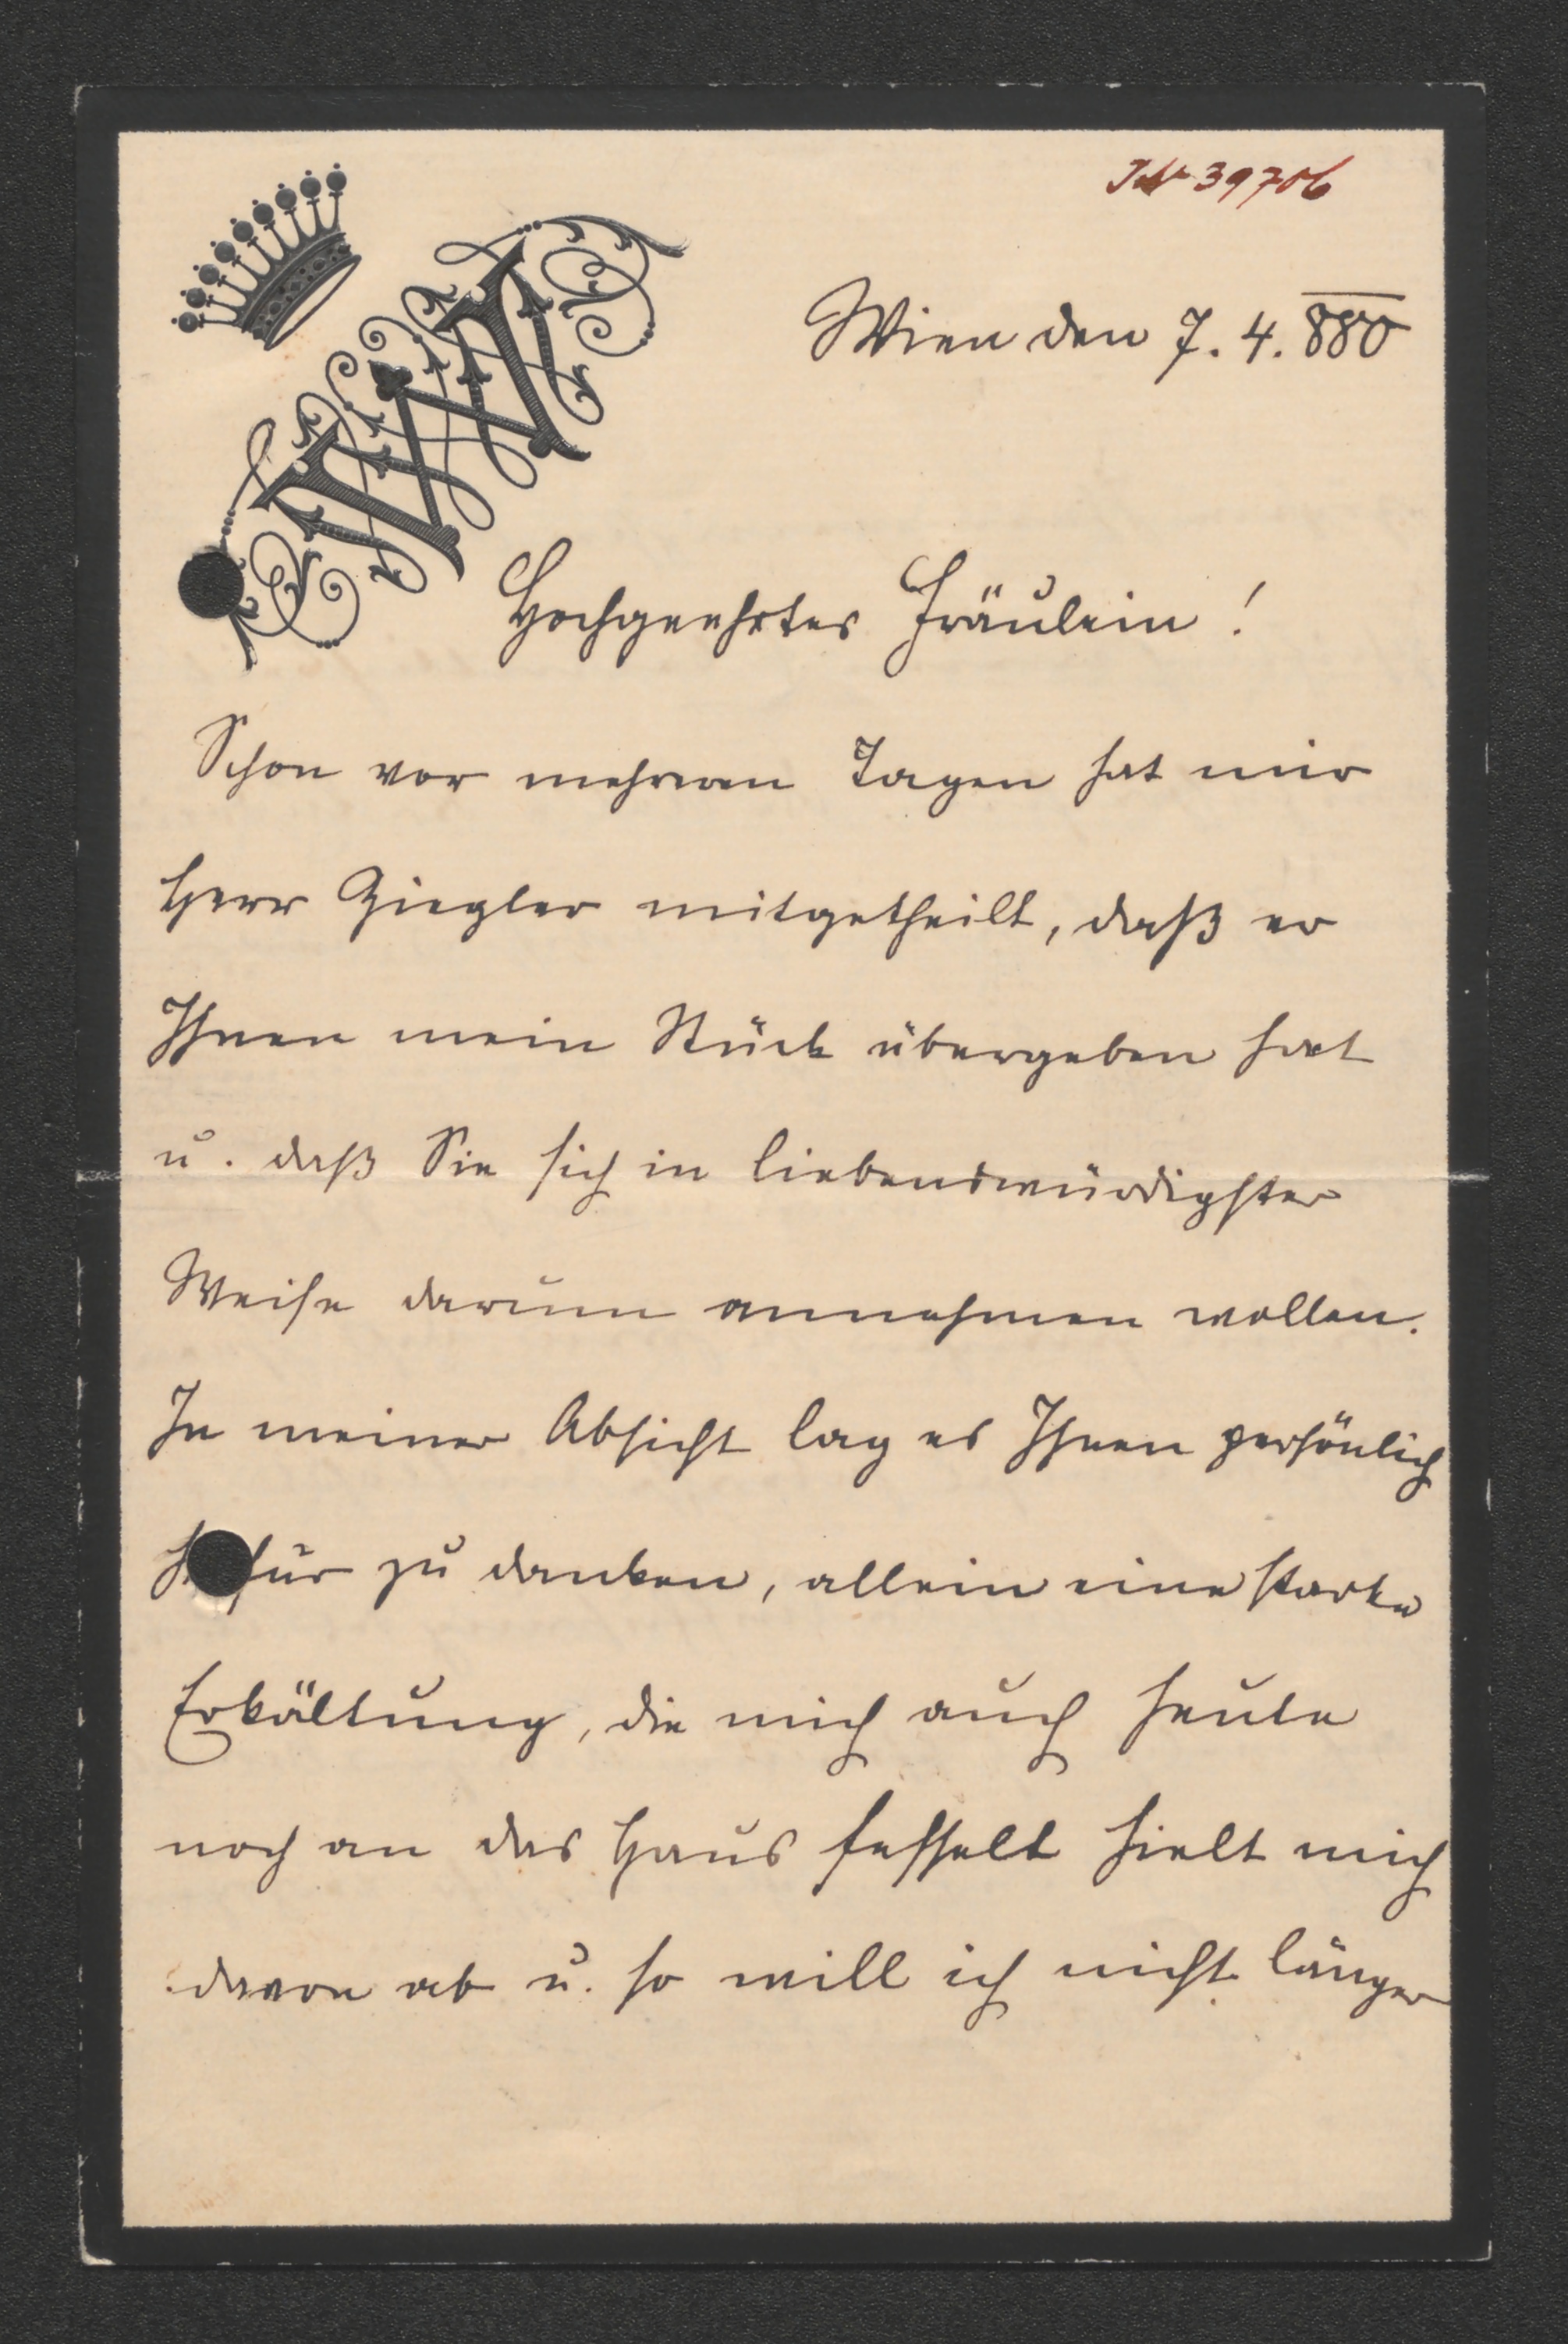 JN 39706
W
Wien den 7. 4. 880
Hochgeehrtes Fräulein!
Schon vor mehreren Tagen hat mir
Herr Ziegler mitgetheilt, daß er
Ihnen mein Stück übergeben hat
u. daß Sie sich in liebenswürdigster
Weise darum annehmen wollen.
In meiner Absicht lag es Ihnen persönlich
für zu danken, allein eine starke
Erkältung, die mich auch heute
noch an das Haus fesselt hielt mich
davon ab u. so will ich nicht länger